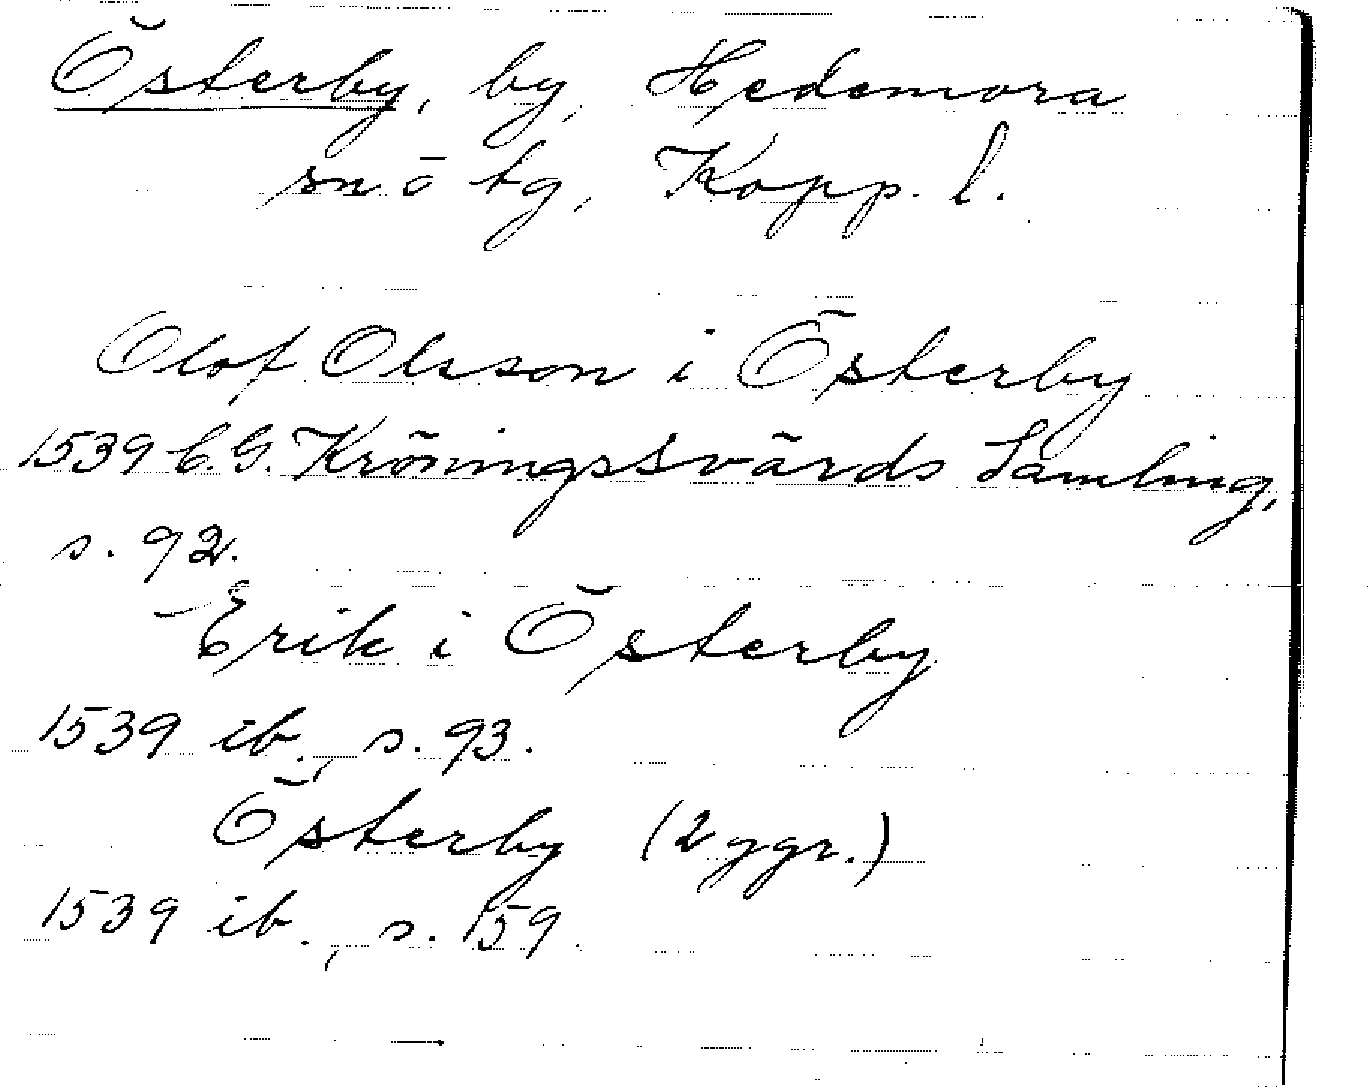 Österby, by, Hedemora
sn o tg, Kopp. l.
Olof Olsson i Österby
1539 C. G. Kröningssvärds Samling,
s. 92.
Erik i Österby
1539 ib., s. 93.
Österby (2 ggr.)
1539 ib., s. 159.